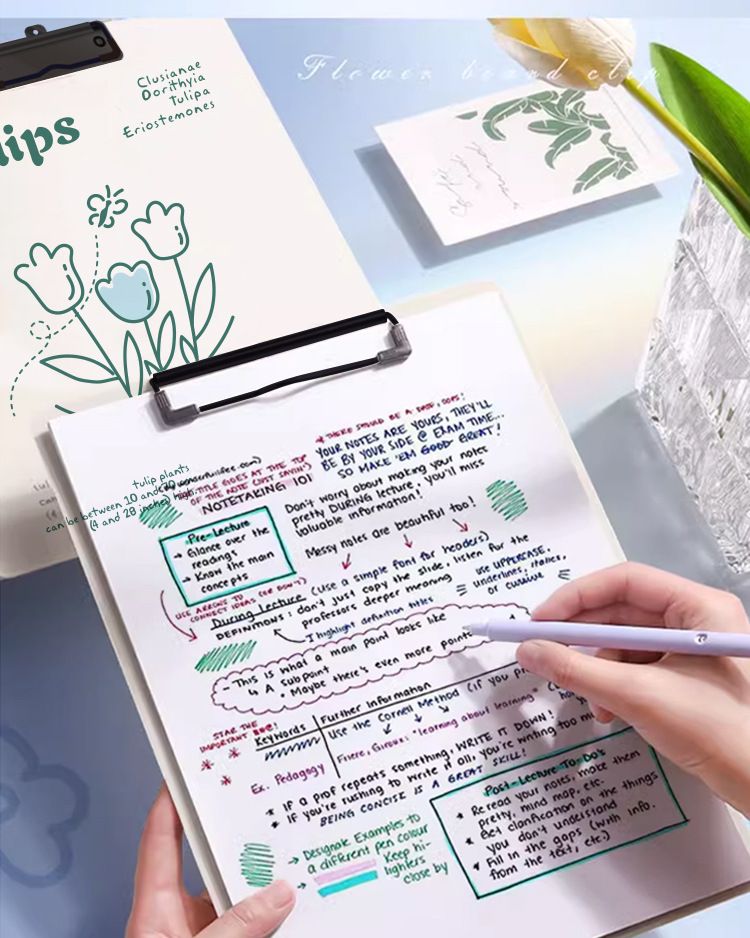 Flower board clip
Clusianae
Dorithyia
Tulipa
Eriostemones
lips
THERE SHOULD BE A DATE, DUES!
YOUR NOTES ARE YOURS, THEY'LL
BE BY YOUR SIDE @ EXAM TIME...
SO MAKE 'EM GOOD GREAT!
TITLE GOES AT THE TOP
OF THE NOTE (JUST SAYIN')
NOTETAKING 101
tulip plants
can be between 10 and 70
(4 and 28 inches) high
Don't worry about making your notes
pretty DURING lecture, you'll miss
valuable information!
Messy notes are beautiful too!
Pre-Lecture
→ Glance over the
readings
→ Know the main
concepts
USE ARROWS TO
CONNECT IDEAS (OR DON'T)
During Lecture (use a simple font for headers)
DEFINITIONS: don't just copy the slide, listen for the
professors deeper meaning
I highlight definition titles
use UPPERCASE,
underlines, italics,
or cursive
- This is what a main point looks like
↳ A subpoint
• Maybe there's even more points
STAR THE
IMPORTANT
Keywords
Further Information
Use the Cornell Method (if you
Ex. Pedagogy
"learning about learning"
* If a prof repeats something, WRITE IT DOWN!
* If you're rushing to write it all, you're writing too
BEING CONCISE IS A GREAT SKILL!
→ Designate Examples to
a different pen colour
→ Keep hi-
lighters
close by
Post-Lecture To-Do's
* Reread your notes, make them
pretty, mind map, etc.
* Get clarification on the things
you don't understand
* Fill in the gaps (with info.
from the text, etc.)